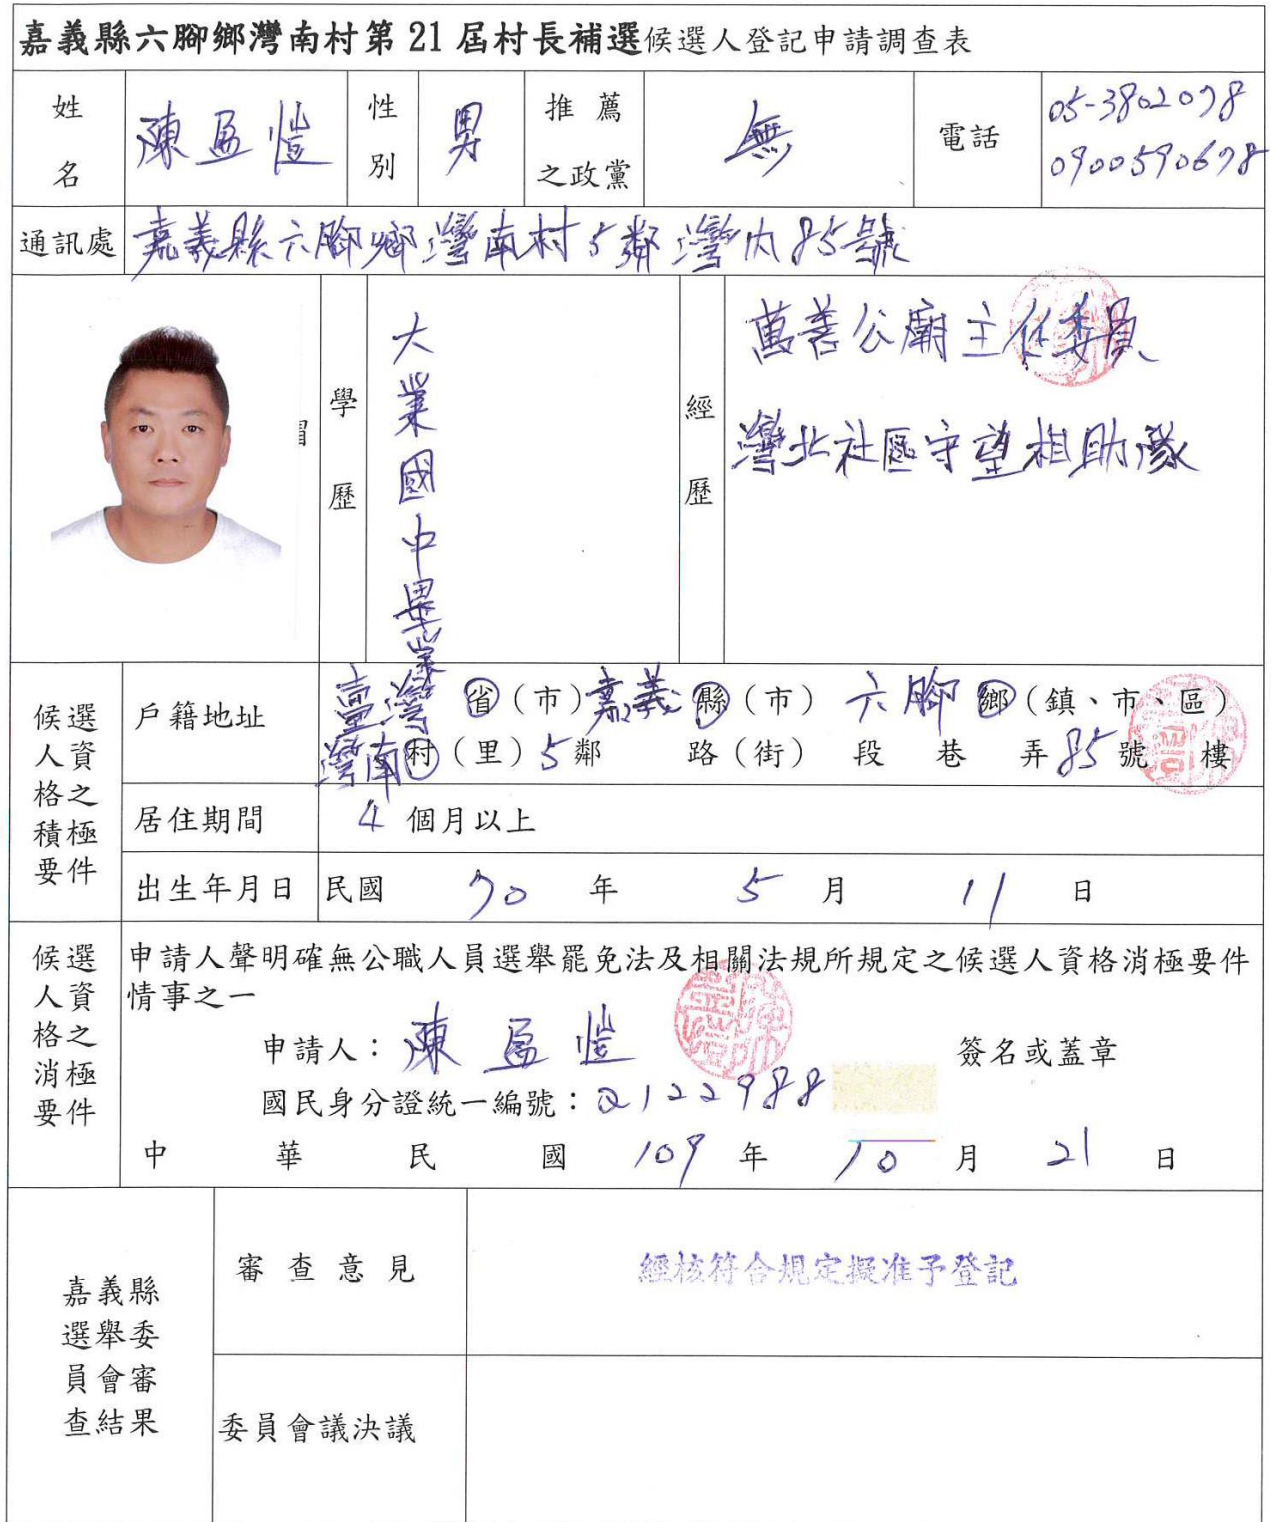 嘉義縣六腳鄉灣南村第 21 屆村長補選候選人登記申請調查表
姓名 陳盈愷 性別 男 推薦之政黨 無 電話 05-3802078
0900590678
通訊處 嘉義縣六腳鄉灣南村5鄰灣內85號
學歷 大業國中畢業
經歷 萬善公廟主任委員
灣北社區守望相助隊
候選人資格之積極要件
戶籍地址 臺灣省(市)嘉義縣(市)六腳鄉(鎮、市、區)
灣南村(里)5鄰 路(街) 段 巷 弄85號 樓
居住期間 4 個月以上
出生年月日 民國 70 年 5 月 11 日
候選人資格之消極要件
申請人聲明確無公職人員選舉罷免法及相關法規所規定之候選人資格消極要件
情事之一
申請人:陳盈愷 簽名或蓋章
國民身分證統一編號:Q122988
中華民國 109 年 10 月 21 日
嘉義縣選舉委員會審查結果
審查意見 經核符合規定擬准予登記
委員會議決議